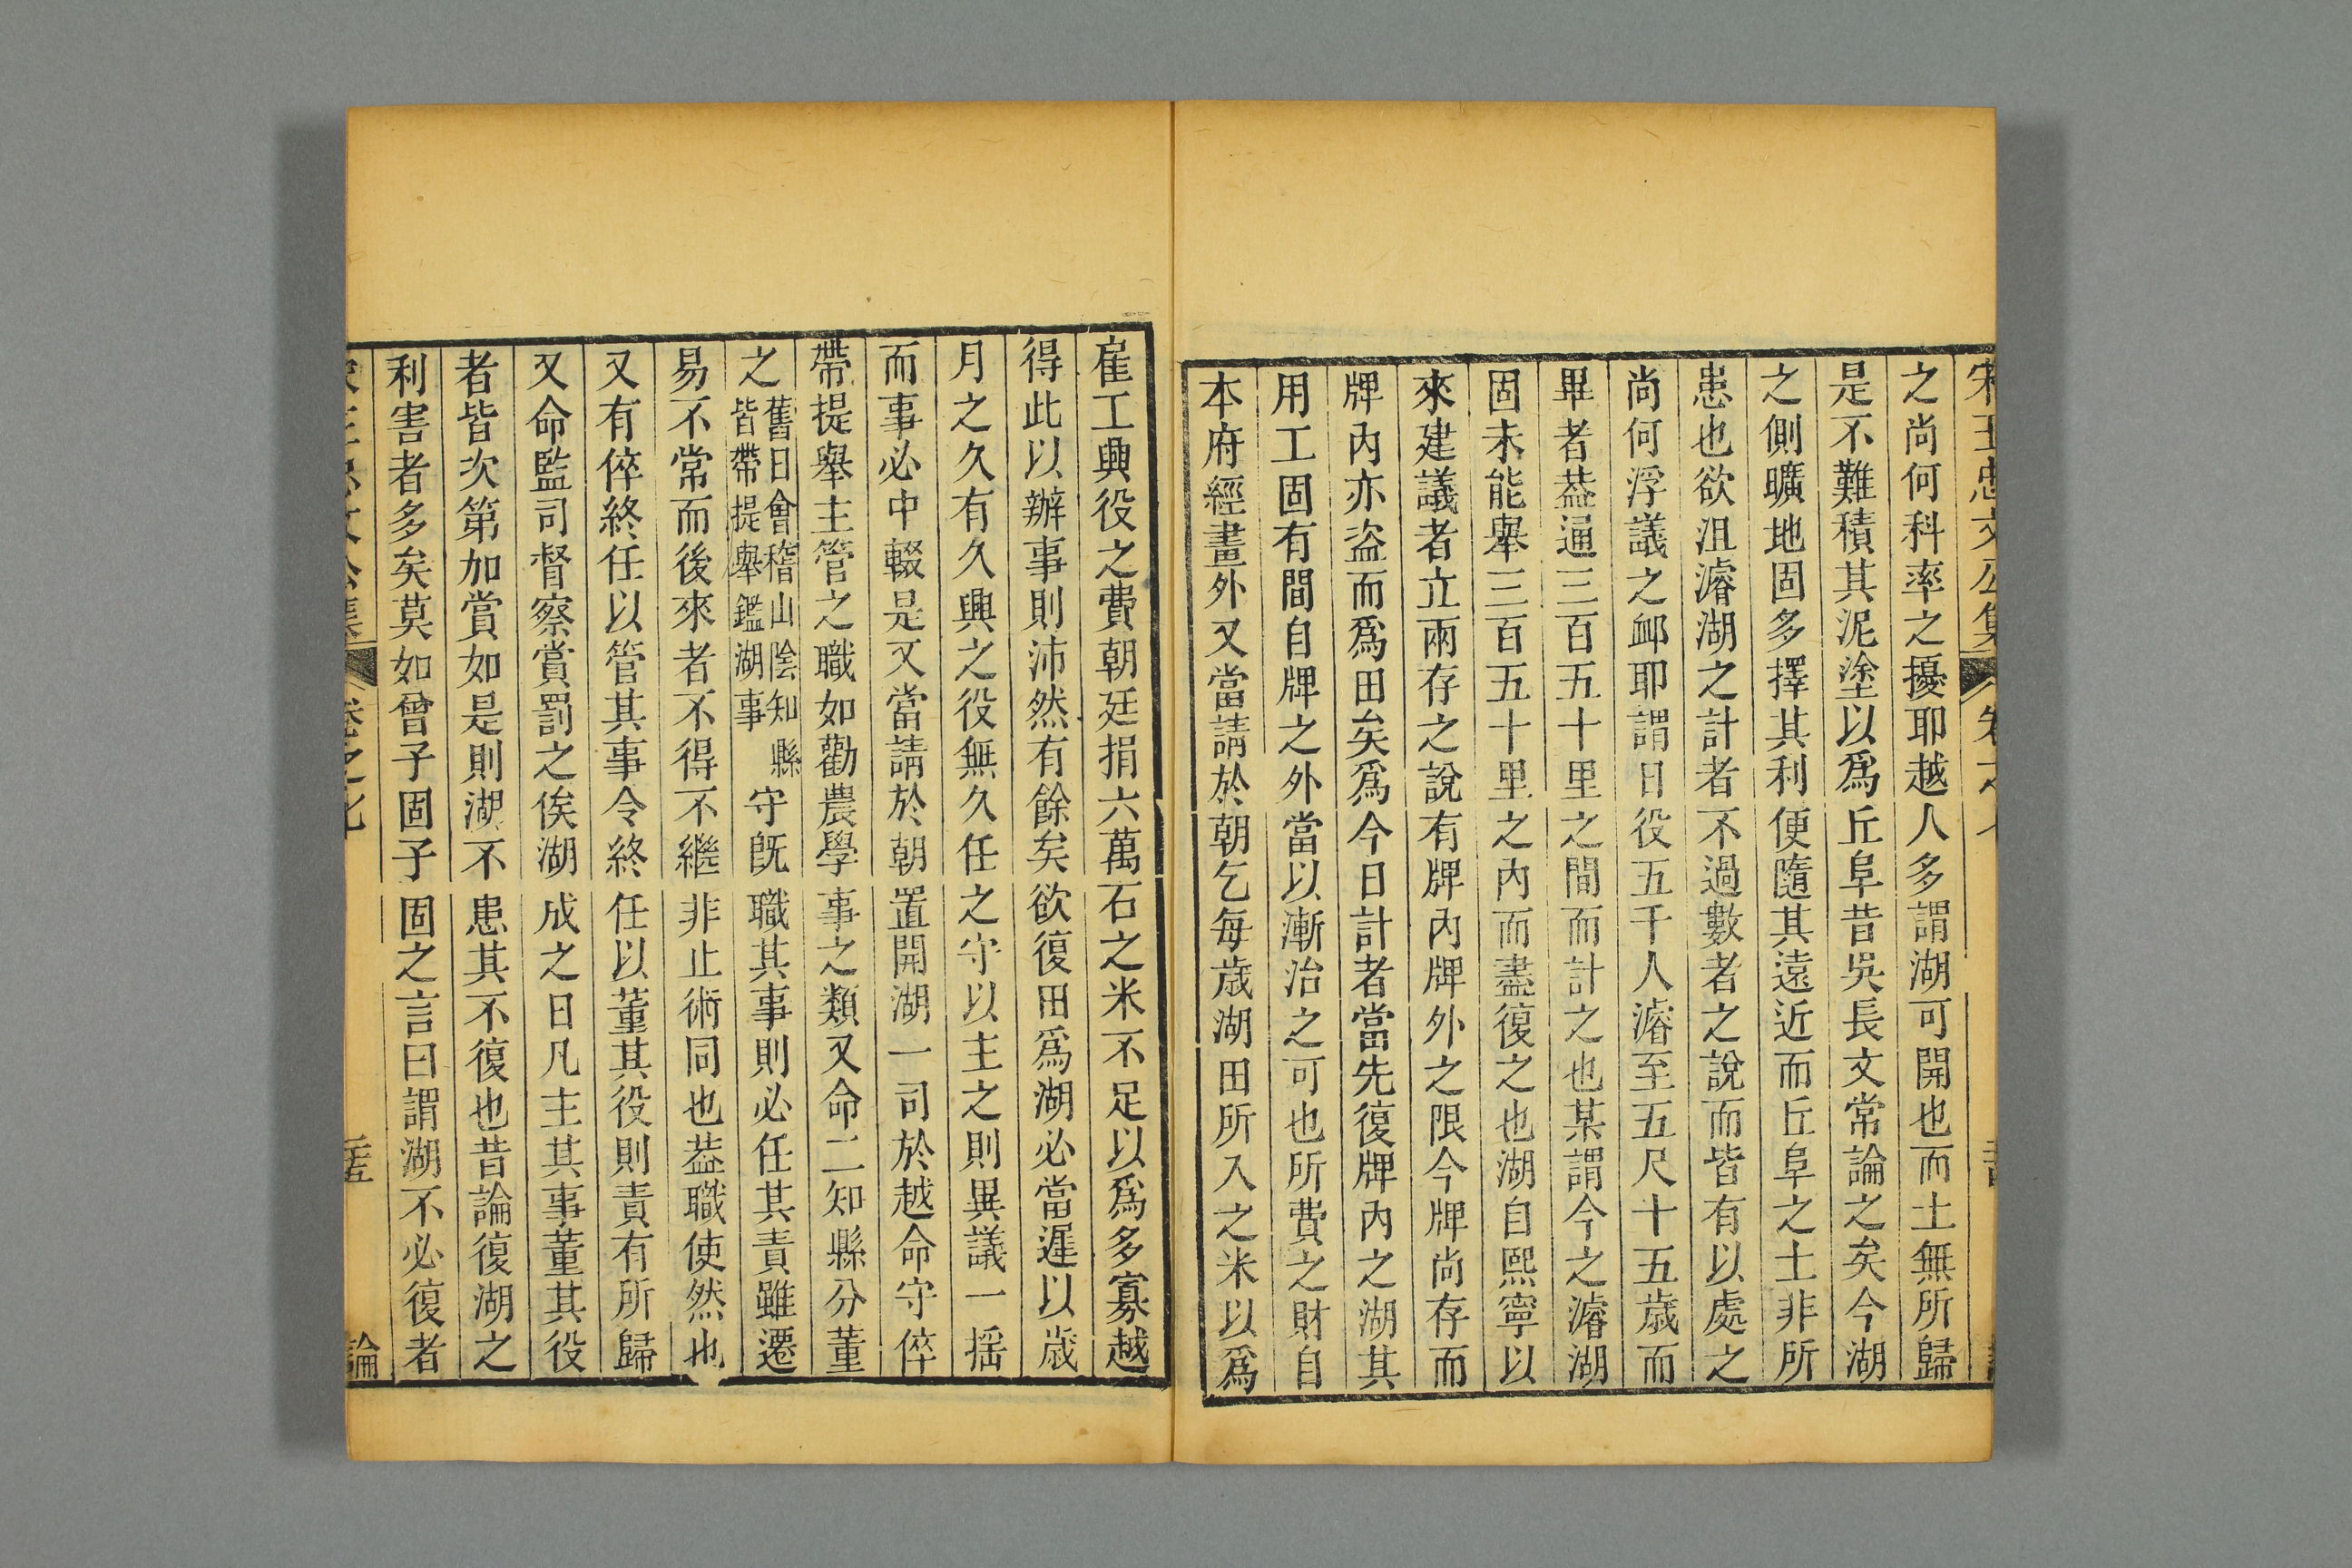 宋王忠文公集 卷之
之尚何科率之擾耶越人多謂湖可開也而土無所歸
是不難積其泥塗以爲丘阜昔吳長文常論之矣今湖
之側曠地固多擇其利便隨其遠近而丘阜之土非所
患也欲沮濬湖之計者不過數者之說而皆有以處之
尚何浮議之卹耶謂日役五千人濬至五尺十五歲而
畢者葢通三百五十里之間而計之也某謂今之濬湖
固未能舉三百五十里之內而盡復之也湖自熙寧以
來建議者立兩存之說有牌內牌外之限今牌尚存而
牌內亦盗而爲田矣爲今日計者當先復牌內之湖其
用工固有間自牌之外當以漸治之可也所費之財自
本府經畫外又當請於朝乞每歲湖田所入之米以爲
雇工興役之費朝廷捐六萬石之米不足以爲多寡越
得此以辦事則沛然有餘矣欲復田爲湖必當遲以歲
月之久有久興之役無久任之守以主之則異議一揺
而事必中輟是又當請於朝置開湖一司於越命守倅
帶提舉主管之職如勸農學事之類又命二知縣分董
之舊日會稽山陰知縣皆帶提舉鑑湖事守旣職其事則必任其責雖遷
易不常而後來者不得不繼非止術同也葢職使然也
又有倅終任以管其事令終任以董其役則責有所歸
又命監司督察賞罰之俟湖成之日凡主其事董其役
者皆次第加賞如是則湖不患其不復也昔論復湖之
利害者多矣莫如曾子固子固之言曰謂湖不必復者
卷之七 論